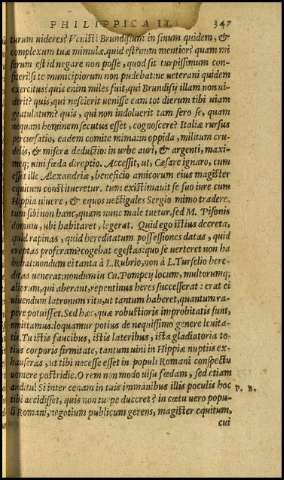 PHILIPPICA II. 347
turum uideres? Venisti Brundisium in sinum quidem, &
complexum tuæ mimulæ. quid est? num mentior? quam mi
serum est id negare non posse, quod sit turpissimum con-
fiteri? si te municipiorum non pudebat: ne ueterani quidem
exercitus? quis enim miles fuit, qui Brundisij illam non ui-
derit? quis, qui nescierit uenisse eam tot dierum tibi uiam
gratulatum? quis, qui non indoluerit tam sero se, quam
nequam hominem secutus esset, cognoscere? Italiæ rursus
percursatio, eadem comite mima: in oppida, militum crude-
lis, & misera deductio: in urbe auri, & argenti, maxi-
meq; uini fœda direptio. Accessit, ut, Cæsare ignaro, cum
esset ille Alexandria, beneficio amicorum eius magister
equitum constitueretur. tum existimauit se suo iure cum
Hippia uiuere, & equos uectigales Sergio mimo tradere.
tum sibi non hanc, quam nunc male tuetur, sed M. Pisonis
domum, ubi habitaret, legerat. Quid ego istius decreta,
quid rapinas, quid hereditatum possessiones datas, quid
ereptas proferam? cogebat egestas: quo se uerteret non ha
bebat: nondum ei tanta à L. Rubrio, non à L. Turselio here-
ditas uenerat: nondum in Cn. Pompeij locum, multorumq;
aliorum, qui aberant, repentinus heres successerat: erat ei
uiuendum latronum ritu, ut tantum haberet, quantum ra-
pere potuisset. Sed hæc, quæ robustioris improbitatis sunt,
omittamus. loquamur potius de nequissimo genere leuita-
tis. Tu istis faucibus, istis lateribus, ista gladiatoria to-
tius corporis firmitate, tantum uini in Hippiæ nuptijs ex-
hauseras, ut tibi necesse esset in populi Romani conspectu
uomere postridie. O rem non modo uisu fœdam, sed etiam
auditu! Si inter cenam in tuis immanibus illis poculis hoc P. R.
tibi accidisset, quis non turpe duceret? in cœtu uero popu-
li Romani, negotium publicum gerens, magister equitum,
cui